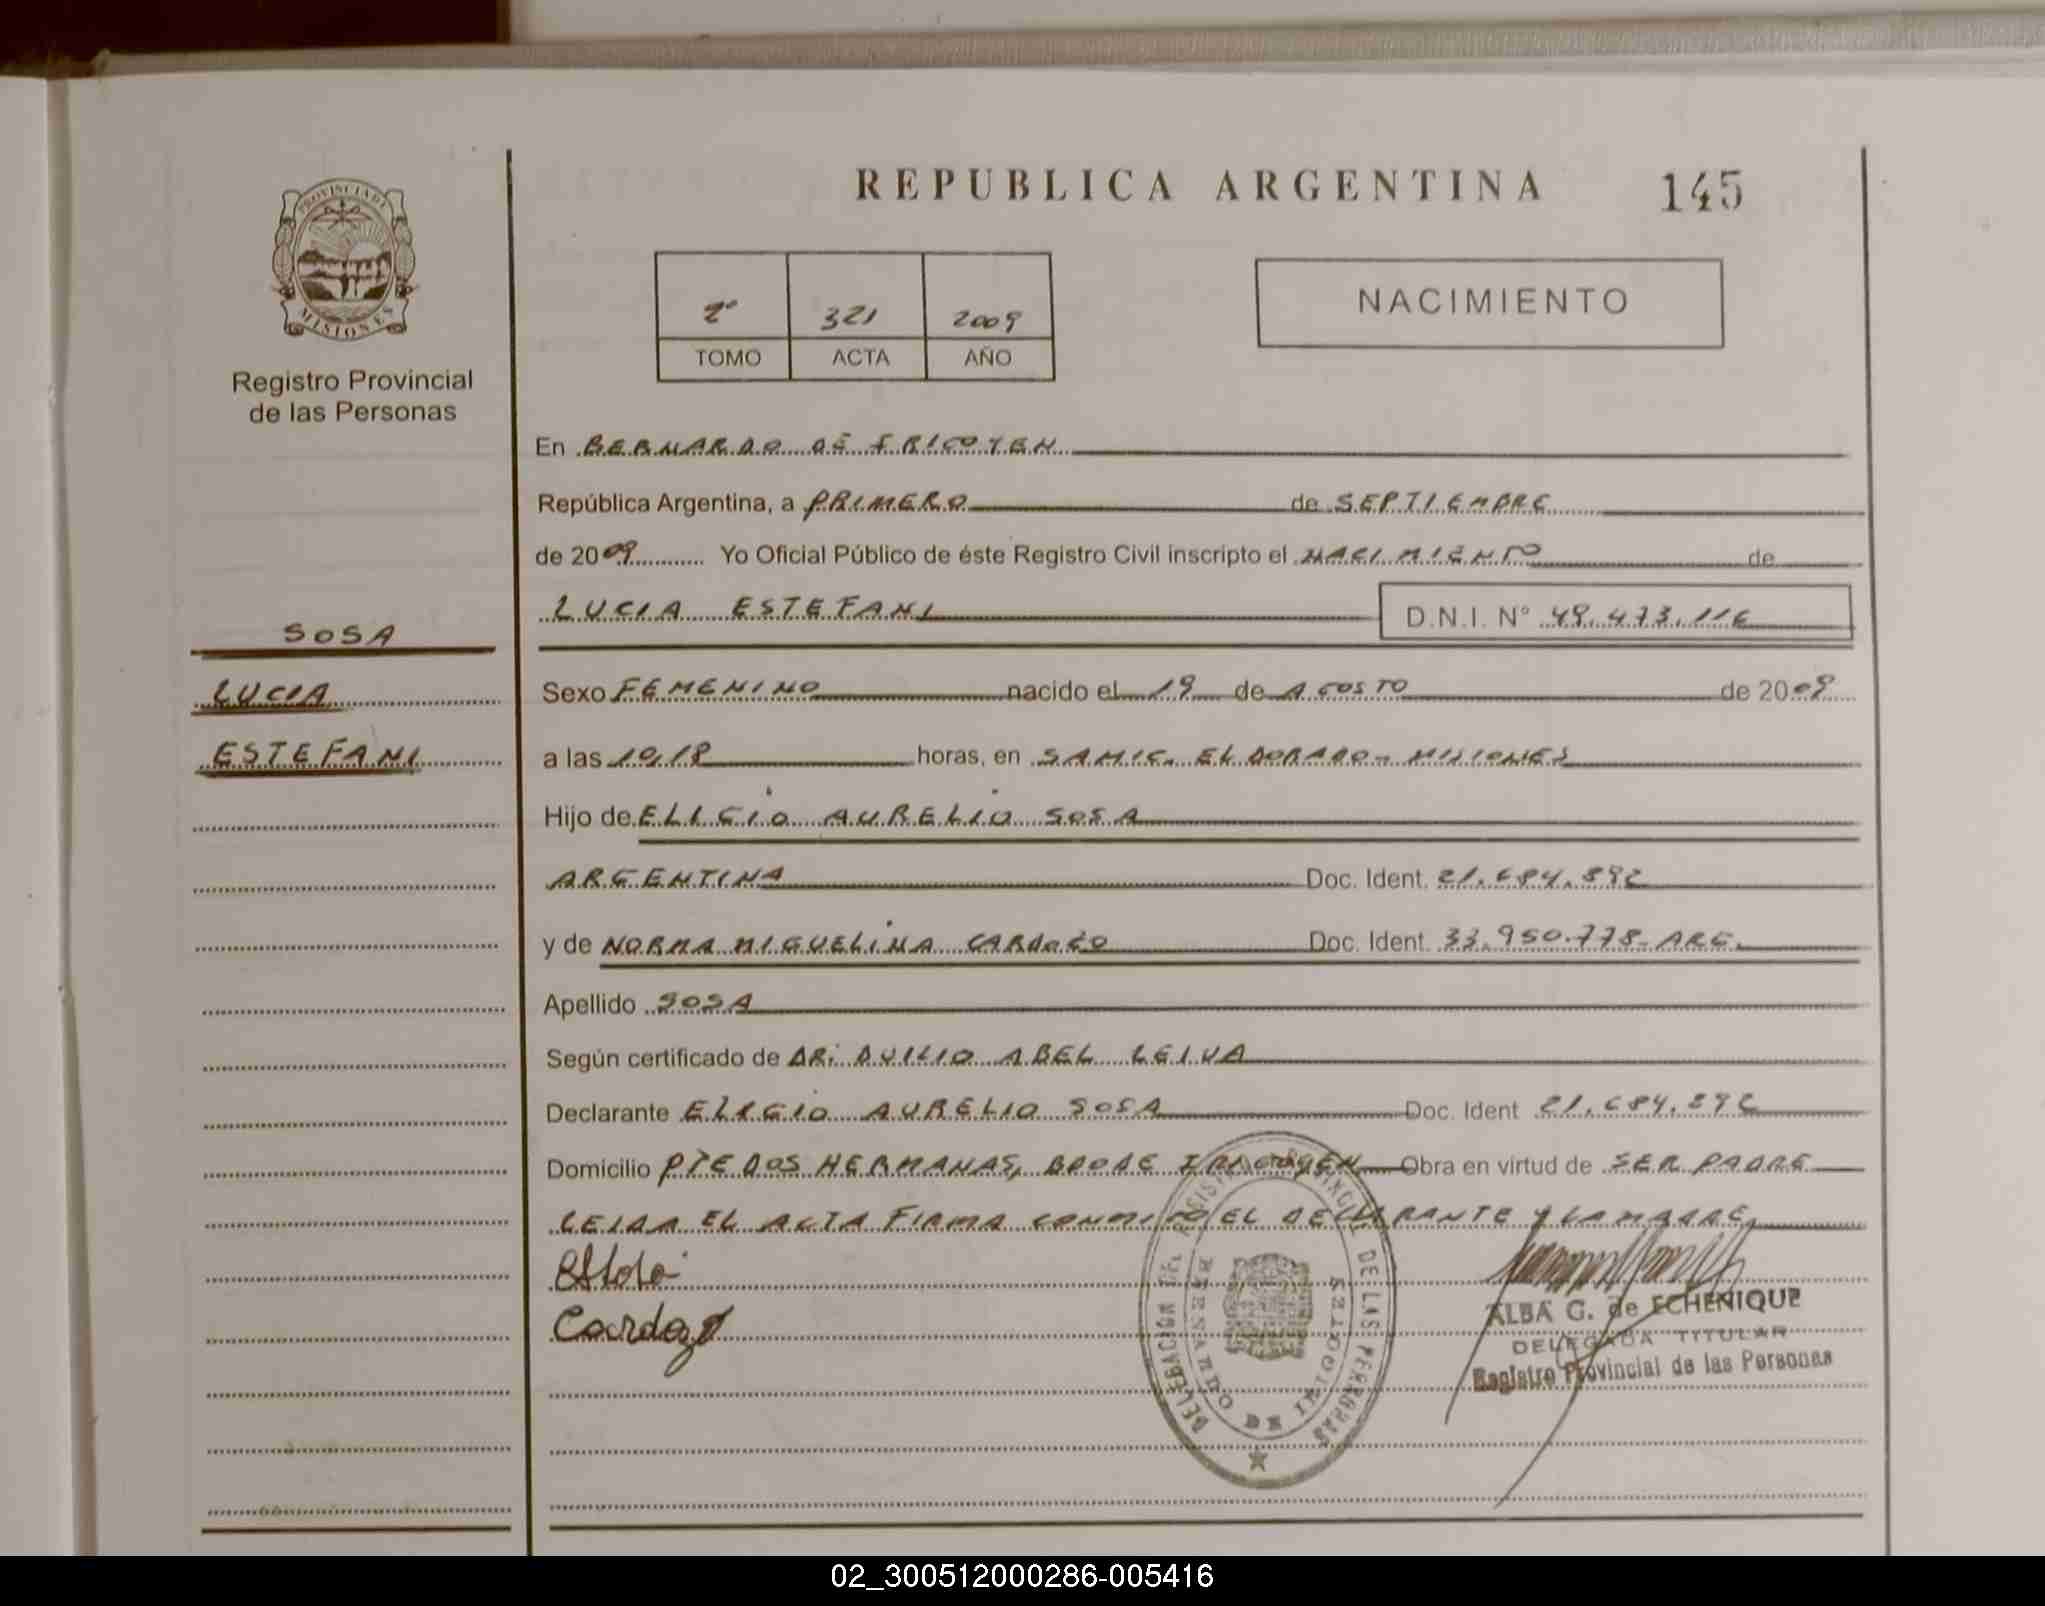 PROVINCIA DE
MISIONES
Registro Provincial
de las Personas
SOSA
LUCIA
ESTEFANI
REPUBLICA ARGENTINA 145
2º 321 2009
TOMO ACTA AÑO
NACIMIENTO
En BERNARDO DE IRIGOYEN
República Argentina, a PRIMERO de SEPTIEMBRE
de 2009 Yo Oficial Público de éste Registro Civil inscripto el NACIMIENTO de
LUCIA ESTEFANI D.N.I. Nº 49.473.116
Sexo FEMENINO nacido el 19 de AGOSTO de 2009
a las 10,18 horas, en SAMIC. ELDORADO - MISIONES
Hijo de ELIGIO AURELIO SOSA
ARGENTINA Doc. Ident. 21.684.892
y de NORMA MIGUELINA CARDOZO Doc. Ident. 33.950.778-ARG.
Apellido SOSA
Según certificado de DR: DUILIO ABEL LEIVA
Declarante ELIGIO AURELIO SOSA Doc. Ident 21.684.892
Domicilio PJE DOS HERMANAS, BDO DE IRIGOYEN Obra en virtud de SER PADRE
LEIDA EL ACTA FIRMA CONMIGO EL DECLARANTE Y LA MADRE
Cardozo
DELEGACION DEL REGISTRO PROVINCIAL DE LAS PERSONAS
BERNARDO DE IRIGOYEN
ALBA G. de ECHENIQUE
DELEGADA TITULAR
Registro Provincial de las Personas
02_300512000286-005416